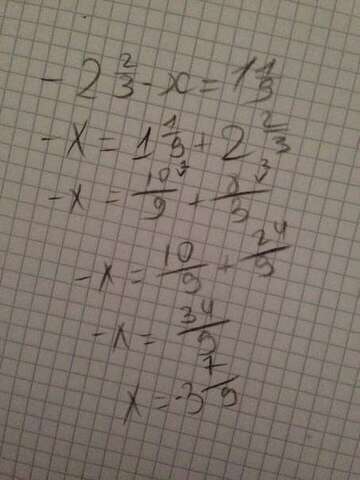 - 2 2/3 - x = 1 1/9
- x = 1 1/9 + 2 2/3
- x = 10/9 + 8/3
- x = 10/9 + 24/9
- x = 34/9
x = -3 7/9